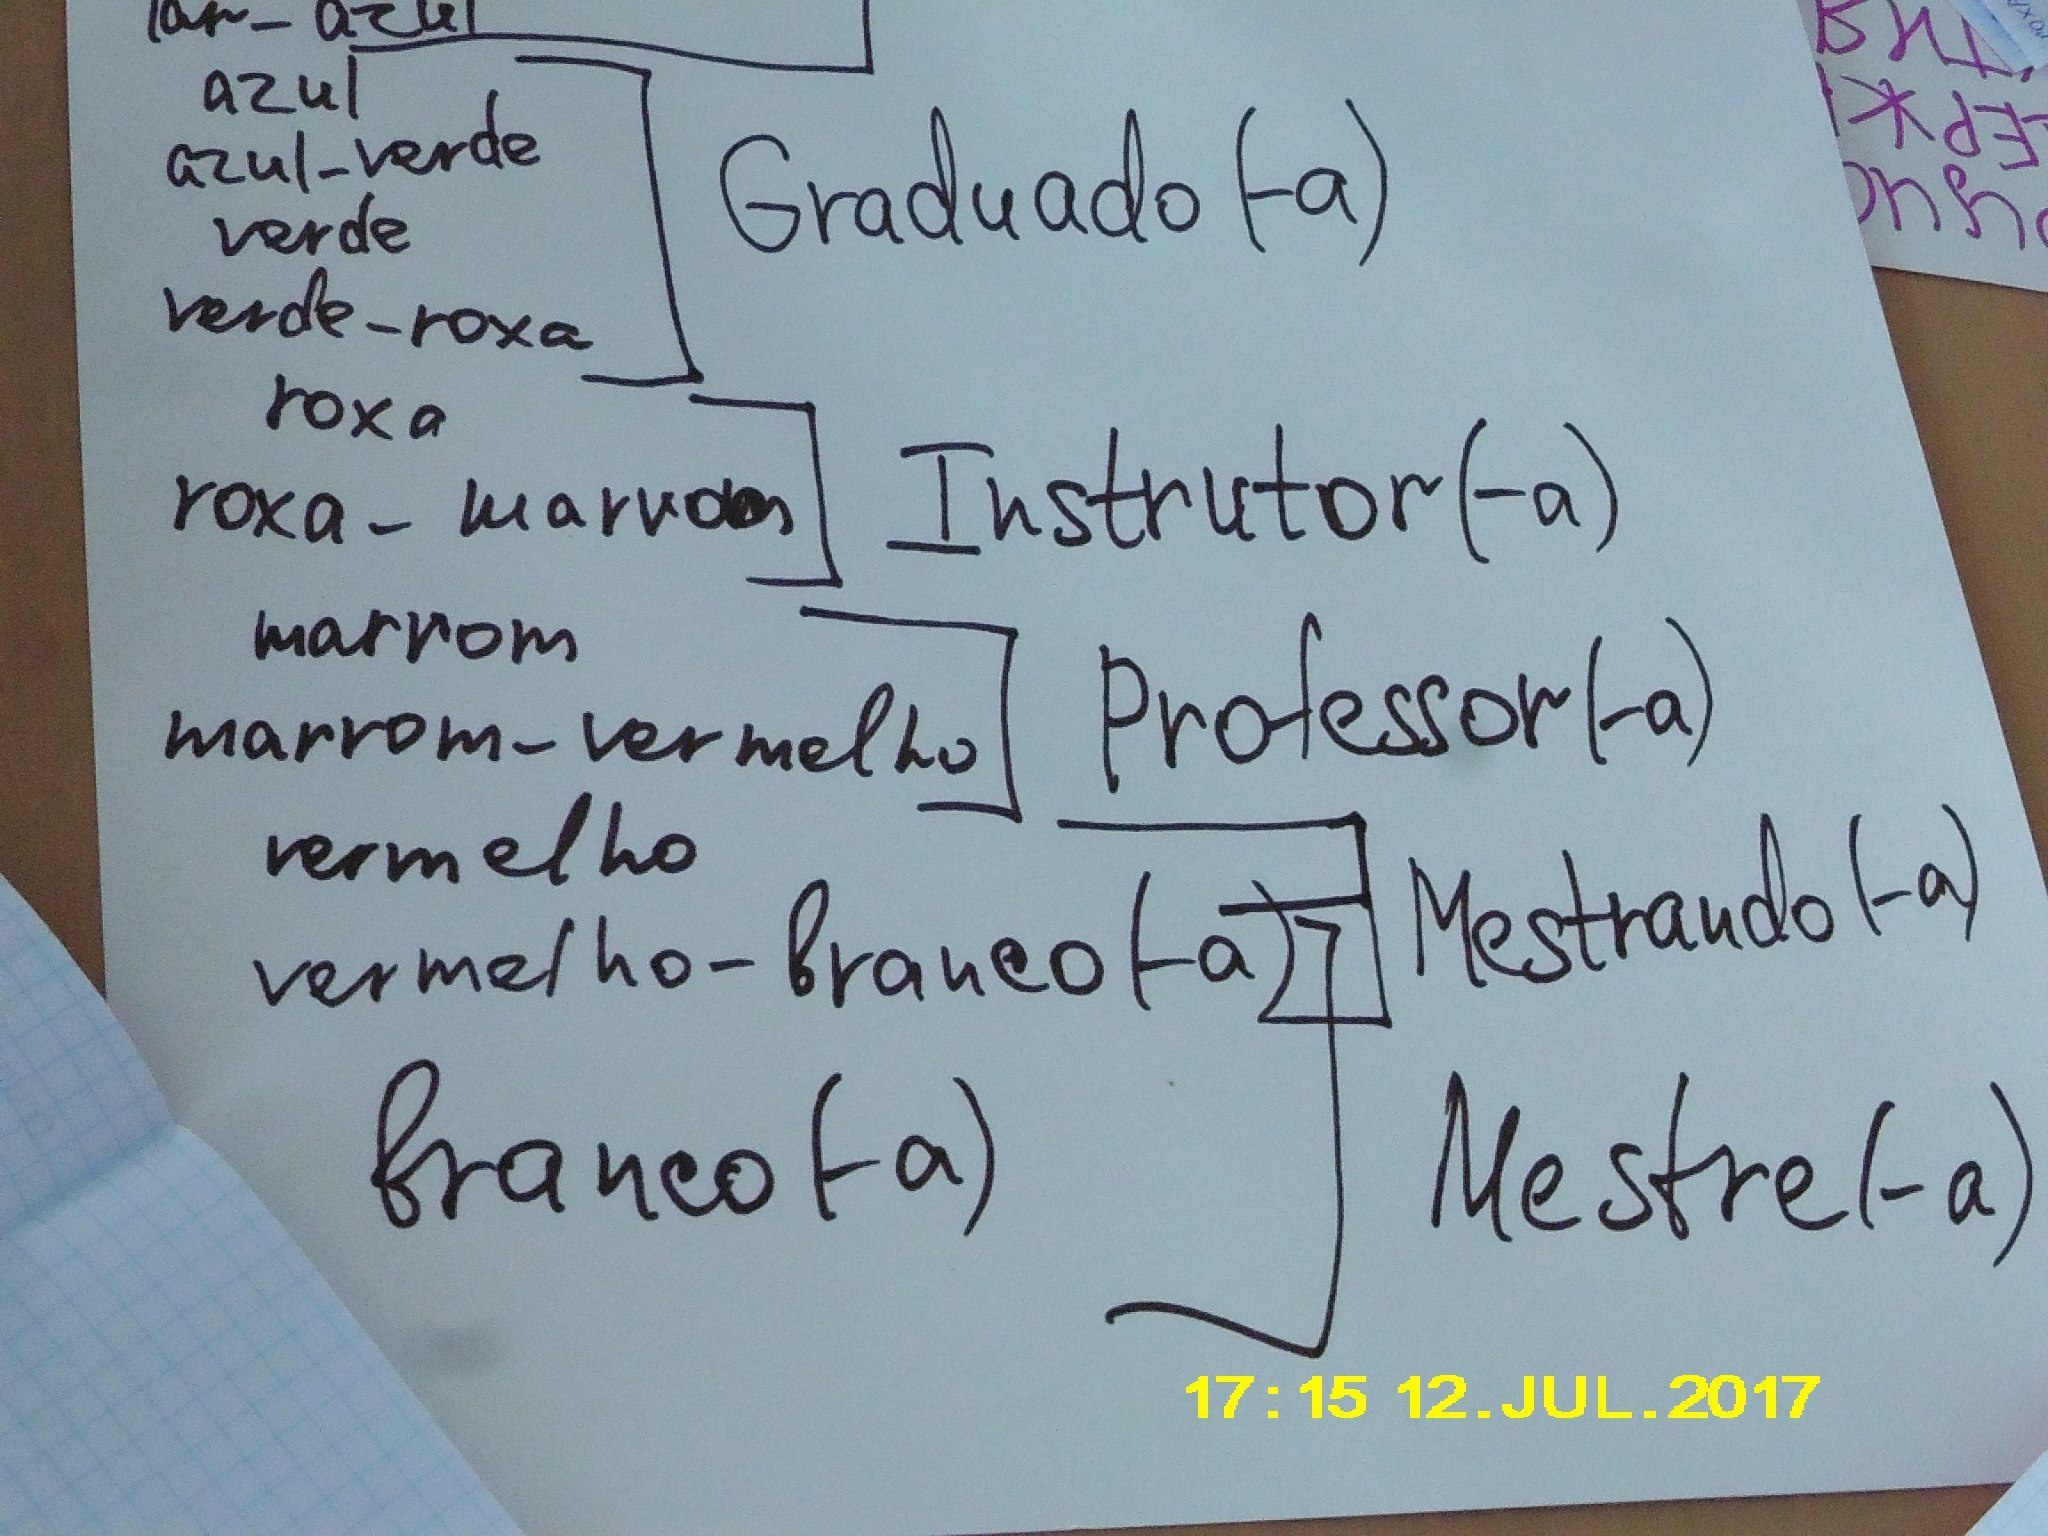 azul
azul-verde
verde
verde-roxa
Graduado (-a)
roxa
roxa - marrom
Instrutor (-a)
marrom
marrom-vermelho
Professor (-a)
vermelho
Mestrando (-a)
vermelho-branco (-a)
branco (-a)
Mestre (-a)
17:15 12.JUL.2017